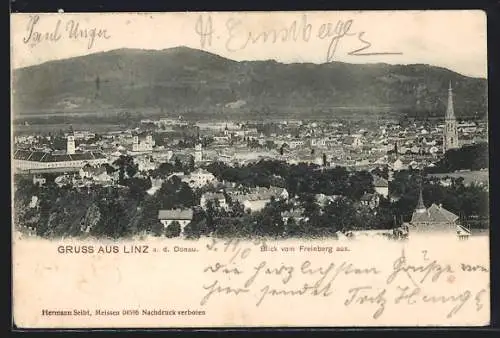 Paul Ungr H. Ernstberger
GRUSS AUS LINZ a. d. Donau. Blick vom Freinberg aus.
die herzlichsten Grüße
hier sendet Fritz
Hermann Seibt, Meissen 04516 Nachdruck verboten